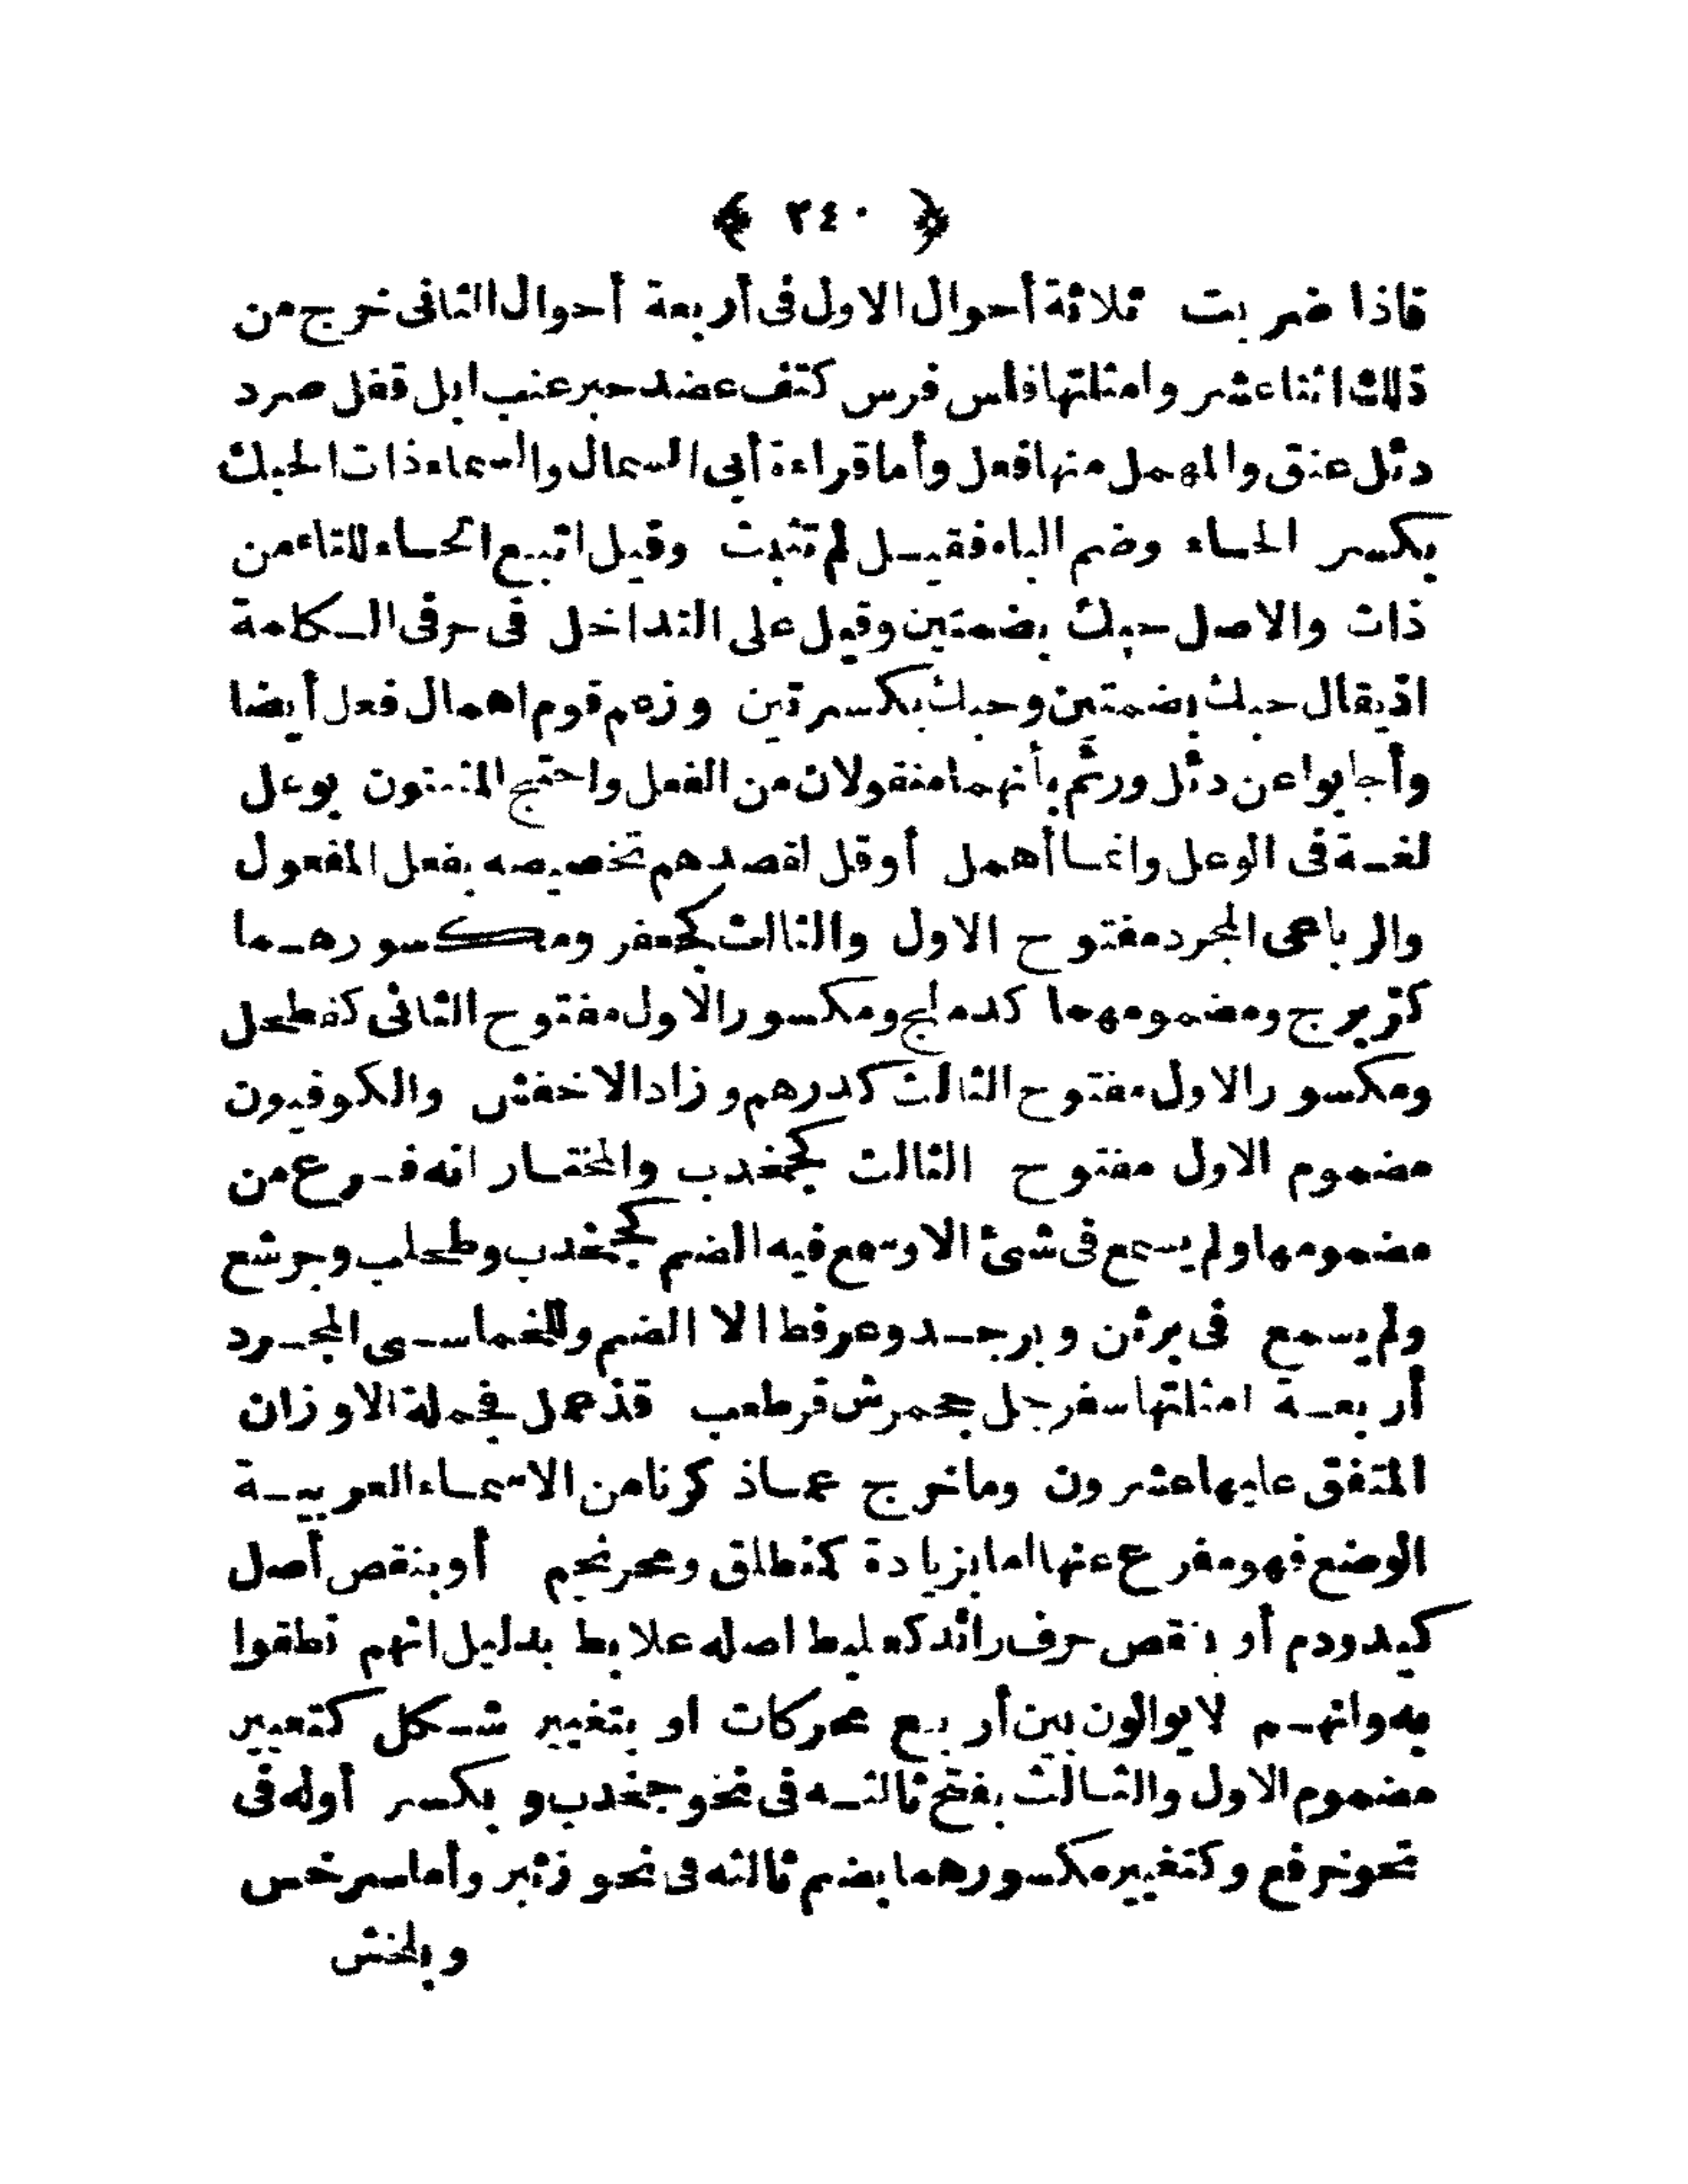 ﴿ ٢٤٠ ﴾
فاذا ضربت ثلاثة أحوال الاول فى أربعة أحوال الثانى خرج من
ذلك اثنا عشر وامثلتها فلس فرس كتف عضد حبر عنب ابل قفل صرد
دئل عنق والمهمل منها فعل وأما قراءة أبى السمال والسماء ذات الحبك
بكسر الحاء وضم الباء فقيل لم تثبت وقيل اتبع الحاء للتاء من
ذات والاصل حبك بضمتين وقيل على التداخل فى حرفى الكلمة
اذ يقال حبك بضمتين وحبك بكسرتين وزعم قوم اهمال فعل أيضا
وأجابوا عن دئل ورئم بأنهما منقولان من الفعل واحتج المثبتون بوعل
لغة فى الوعل وانما أهمل أو قل لقصدهم تخصيصه بفعل المفعول
والرباعى المجرد مفتوح الاول والثالث كجعفر ومكسورهما
كزبرج ومضمومهما كدملج ومكسور الاول مفتوح الثانى كفطحل
ومكسور الاول مفتوح الثالث كدرهم وزاد الاخفش والكوفيون
مضموم الاول مفتوح الثالث كجخدب والمختار انه فرع من
مضمومها ولم يسمع فى شئ الا وسمع فيه الضم كجخدب وطحلب وجرشع
ولم يسمع فى برثن وبرجد وعرفط الا الضم وللخماسى المجرد
أربعة امثلتها سفرجل جحمرش قرطعب قذعمل فجملة الاوزان
المتفق عليها عشرون وما خرج عما ذكرنا من الاسماء العربية
الوضع فهو مفرع عنها اما بزيادة كمنطلق ومحرنجم أو بنقص أصل
كيد ودم أو بنقص حرف زائد كعلبط اصله علابط بدليل انهم نطقوا
به وانهم لا يوالون بين أربع محركات او بتغيير شكل كتغيير
مضموم الاول والثالث بفتح ثالثه فى نحو جخدب وبكسر أوله فى
نحو خرفع وكتغيير مكسورهما بضم ثالثه فى نحو زئبر وأما سرخس
وبلخش